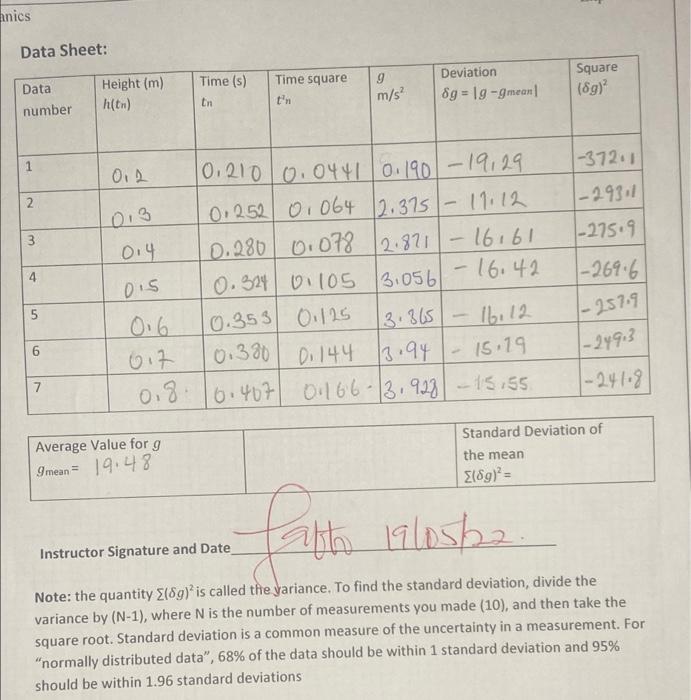 anics
Data Sheet:
Data number Height (m) h(tn) Time (s) tn Time square t²n g m/s² Deviation δg = |g -gmean| Square (δg)²
1 0.2 0.210 0.0441 0.190 -19.29 -372.1
2 0.3 0.252 0.064 2.375 - 17.12 -293.1
3 0.4 0.280 0.078 2.871 - 16.61 -275.9
4 0.5 0.324 0.105 3.056 - 16.42 -269.6
5 0.6 0.353 0.125 3.365 - 16.12 -257.9
6 0.7 0.380 0.144 3.94 - 15.79 -249.3
7 0.8 0.407 0.166 3.928 -15.55 -241.8
Average Value for g
gmean = 19.48
Standard Deviation of
the mean
Σ(δg)² =
Instructor Signature and Date 19/05/22.
Note: the quantity Σ(δg)² is called the variance. To find the standard deviation, divide the
variance by (N-1), where N is the number of measurements you made (10), and then take the
square root. Standard deviation is a common measure of the uncertainty in a measurement. For
"normally distributed data", 68% of the data should be within 1 standard deviation and 95%
should be within 1.96 standard deviations